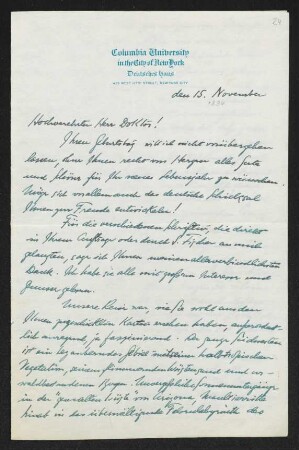 24
Columbia University
in the City of New York
Deutsches Haus
den 15. November
Hochverehrter Herr Doktor!
Ihren Geburtstag will ich nicht vorübergehen
lassen, ohne Ihnen recht von Herzen alles Gute
und Schöne für Ihr neues Lebensjahr zu wünschen.
Möge sich vor allem auch das deutsche Schicksal
Ihnen zur Freude entwickeln!
Für die verschiedenen Schriften, die direkt
in Ihrem Auftrage oder durch S. Fischer an mich
gelangten, sage ich Ihnen meinen allerverbindlichsten
Dank. Ich habe sie alle mit großem Interesse und
Genuss gelesen.
Unsere Reise war, wie Sie wohl aus den
Ihnen geschickten Karten ersehen haben, außerordent-
lich anregend, ja faszinierend. Der ganze Südwesten
ist ein bezauberndes Gebiet mit seiner halbtropischen
Vegetation, seinen flimmernden Wüsten und
wilden Bergen. Unvergeßliche Sonnenuntergänge
in der "gemalten Wüste" von Arizona,
Felsenlabyrinth des